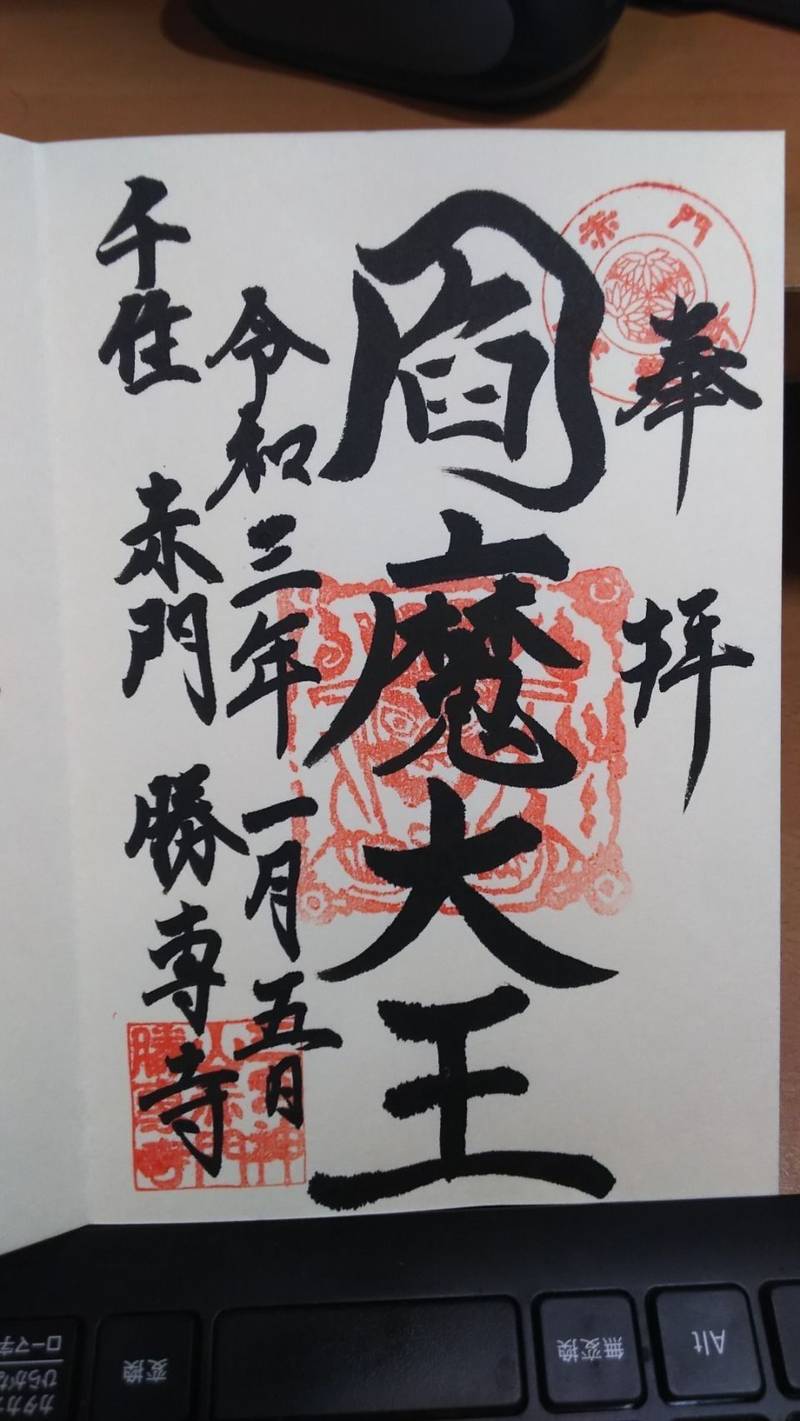 奉拝
閻魔大王
令和三年一月五日
千住 赤門 勝専寺
赤門
勝専寺
Alt
無変換
変換
カタカ
ひらがな
ローマ字